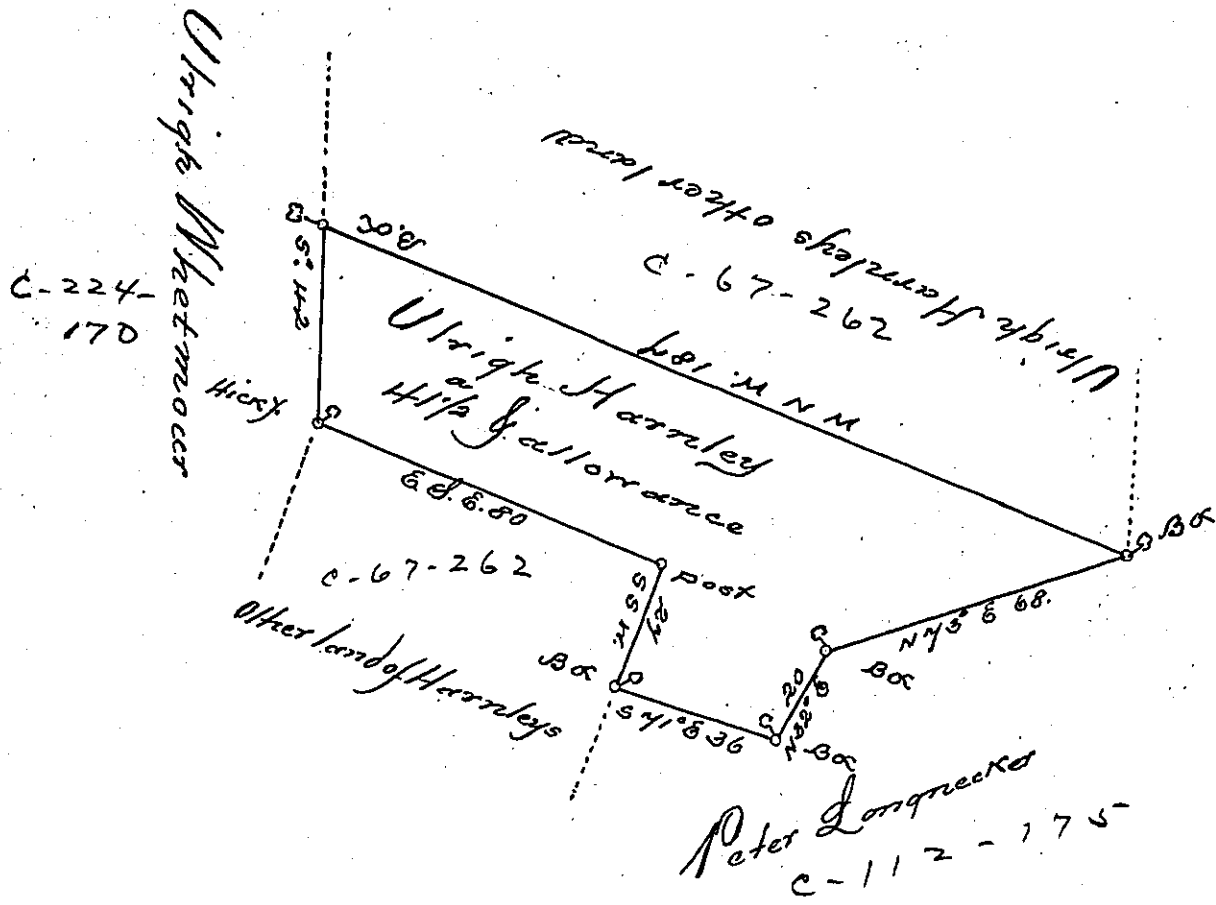 Ulrigh Whetmoer
C-224-
170
Ulrigh Harnleys other land
C-67-262
B.O.
S. 42
W N W. 187
Ulrigh Harnley
a
41½ & allowance
Hicky.
E S. E. 80
C-67-262
Other land of Harnleys
post
S S W. 27
BO
S 71° E 36
BO
N 32° E 20
BO
N 73° E 68.
BO
Peter Longnecker
C-112-175